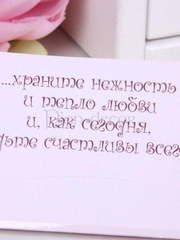 ...храните нежность
и тепло любви
и, как сегодня,
дьте счастливы всег